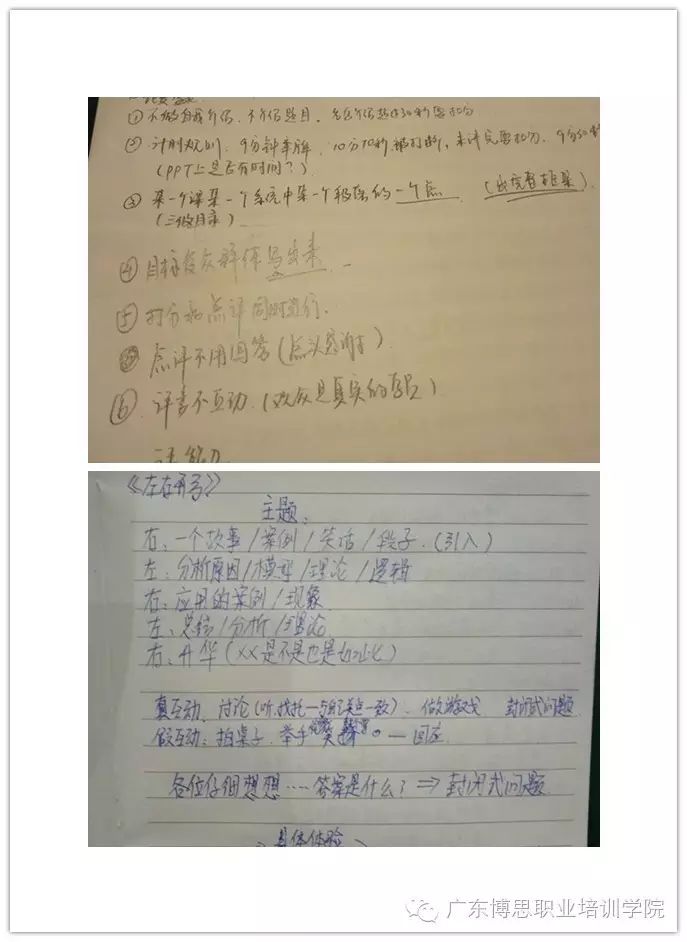 ① 不做自我介绍、不介绍题目,
② 计时规则:9分钟举牌,10分10秒被打断,未评完要扣分,
(PPT上是否有时间?)
③ 某一个课某一个系统中某一个段落的一个点
(三级目录)
④ 目标受众群体写出来
⑤ 打分和点评同时进行.
点评不用回答(点头感谢)
⑥ 评委不互动.(观众是真实的学员)
《左右开弓》
主题:
右:一个故事/案例/笑话/段子.(引入)
左:分析原因/模型/理论/逻辑
右:应用的案例/现象
左:总结/分析/理论
右:升华(XX是不是也是如此)
真互动、讨论(听、找托—与自己观点一致)、做游戏 封闭式问题
假互动:拍桌子、举手 — 回应
各位仔细想想……答案是什么?⇒封闭式问题
具体体验
广东博思职业培训学院